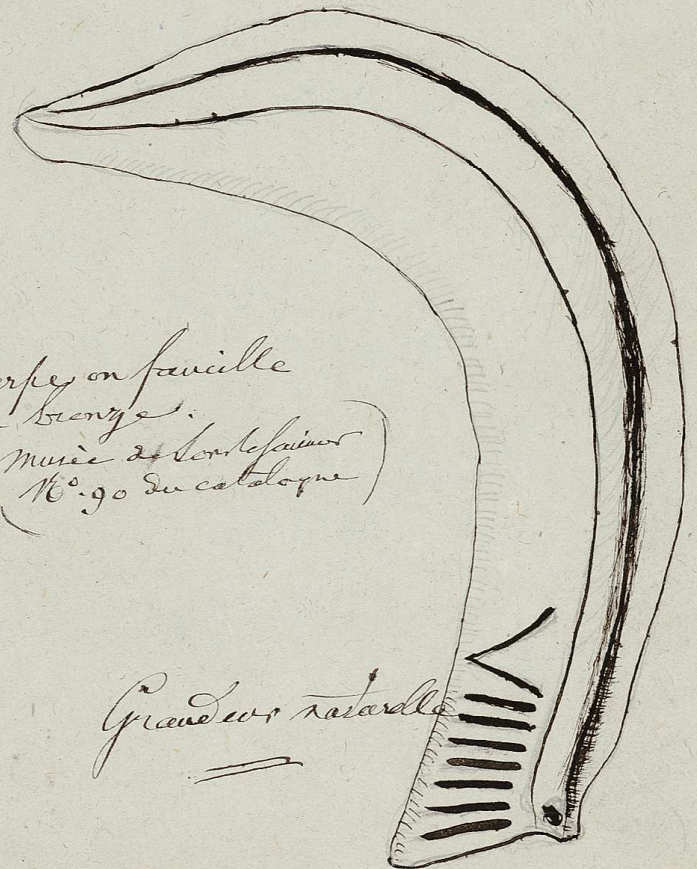 ou faucille
bronze.
musée de Lons le Saunier
N°. 90 du catalogue
Grandeur naturelle